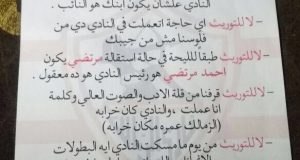 النادي علشان يكون ابنك هو النائب .
–لا للتوريث اي حاجة اتعملت في النادي دي من
فلوسنا مش من جيبك
–لا للتوريث طبقا لليحة في حالة استقالة مرتضي يكون
احمد مرتضي هو رئيس النادي هو ده معقول .
–لا للتوريث قرفنا من قلة الادب والصوت العالي وكلمة
انا عملت ، والنادي كان خرابه
(الزمالك عمره مكان خرابه)
–لا للتوريث من يوم ما مسكت النادي ايه البطولات